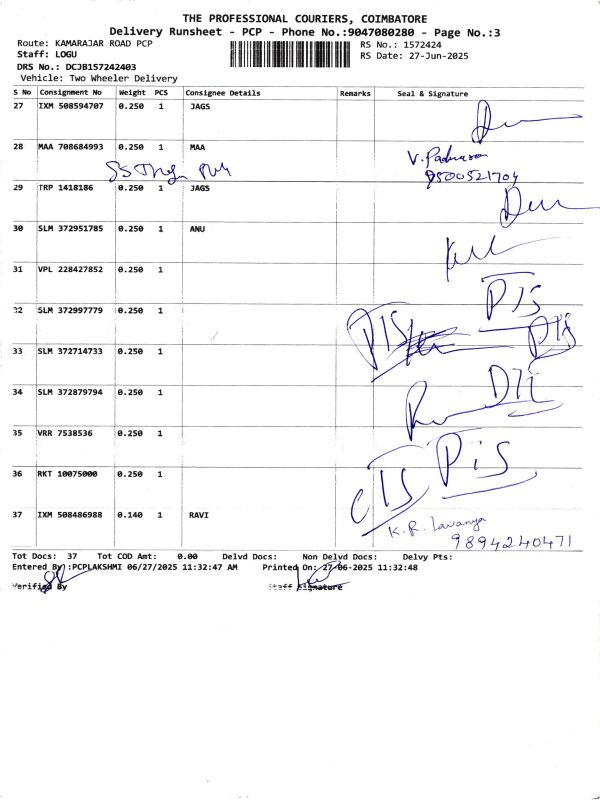 THE PROFESSIONAL COURIERS, COIMBATORE
Delivery Runsheet - PCP - Phone No.:9047080280 - Page No.:3
Route: KAMARAJAR ROAD PCP
Staff: LOGU
DRS No.: DCJB157242403
Vehicle: Two Wheeler Delivery
RS No.: 1572424
RS Date: 27-Jun-2025
S No Consignment No Weight PCS Consignee Details Remarks Seal & Signature
27 IXM 508594707 0.250 1 JAGS
28 MAA 708684993 0.250 1 MAA
9500521704
29 TRP 1418186 0.250 1 JAGS
30 SLM 372951785 0.250 1 ANU
31 VPL 228427852 0.250 1
32 SLM 372997779 0.250 1
33 SLM 372714733 0.250 1
34 SLM 372879794 0.250 1
35 VRR 7538536 0.250 1
36 RKT 10075000 0.250 1
37 IXM 508486988 0.140 1 RAVI
K.R. Lavanya
9894240471
Tot Docs: 37 Tot COD Amt: 0.00 Delvd Docs: Non Delvd Docs: Delvy Pts:
Entered By :PCPLAKSHMI 06/27/2025 11:32:47 AM Printed On: 27-06-2025 11:32:48
Verified By Staff Signature